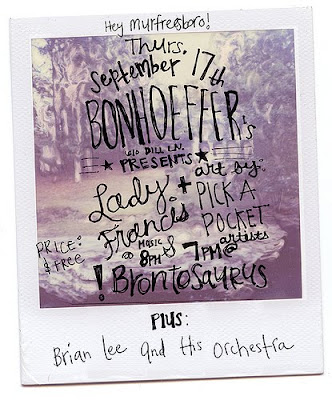 Hey murfreesboro!
Thurs.
September 17th
BONHOEFFER's
610 DILL LN.
PRESENTS
Lady + art by:
Francis PICK A
POCKET
PRICE: MUSIC & artists
$ free @ 8PM 7PM @
! Brontosaurus
Plus:
Brian Lee and His Orchestra